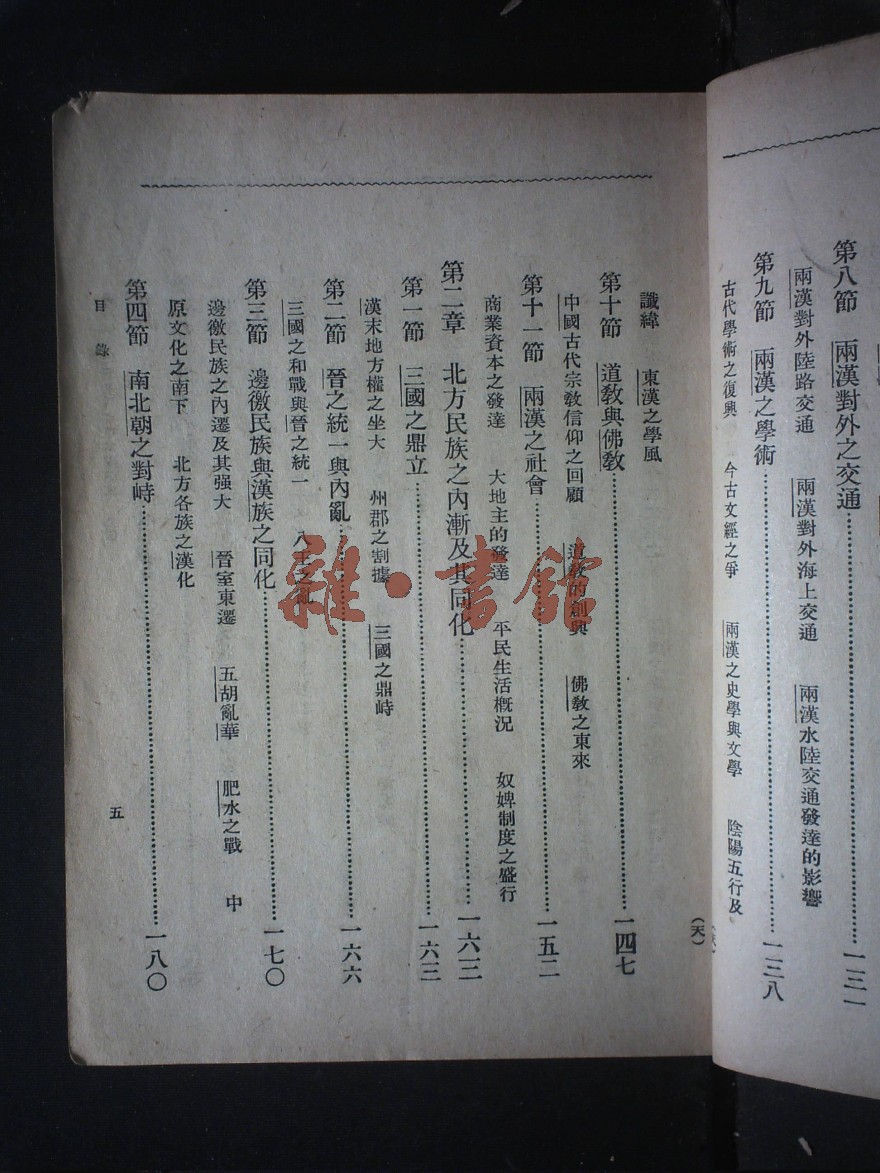 第八節　兩漢對外之交通……一三一
兩漢對外陸路交通　兩漢對外海上交通　兩漢水陸交通發達的影響
第九節　兩漢之學術……一三八
古代學術之復興　今古文經之爭　兩漢之史學與文學　陰陽五行及
(天)
讖緯　東漢之學風
第十節　道教與佛教……一四七
中國古代宗教信仰之回顧　道教的創興　佛教之東來
第十一節　兩漢之社會……一五二
商業資本之發達　大地主的發達　平民生活概況　奴婢制度之盛行
第二章　北方民族之內漸及其同化……一六三
第一節　三國之鼎立……一六三
漢末地方權之坐大　州郡之割據　三國之鼎峙
第二節　晉之統一與內亂……一六六
三國之和戰與晉之統一　八王之亂
第三節　邊徼民族與漢族之同化……一七〇
邊徼民族之內遷及其强大　晉室東遷　五胡亂華　肥水之戰　中
原文化之南下　北方各族之漢化
第四節　南北朝之對峙……一八〇
目錄
五
雜·書館